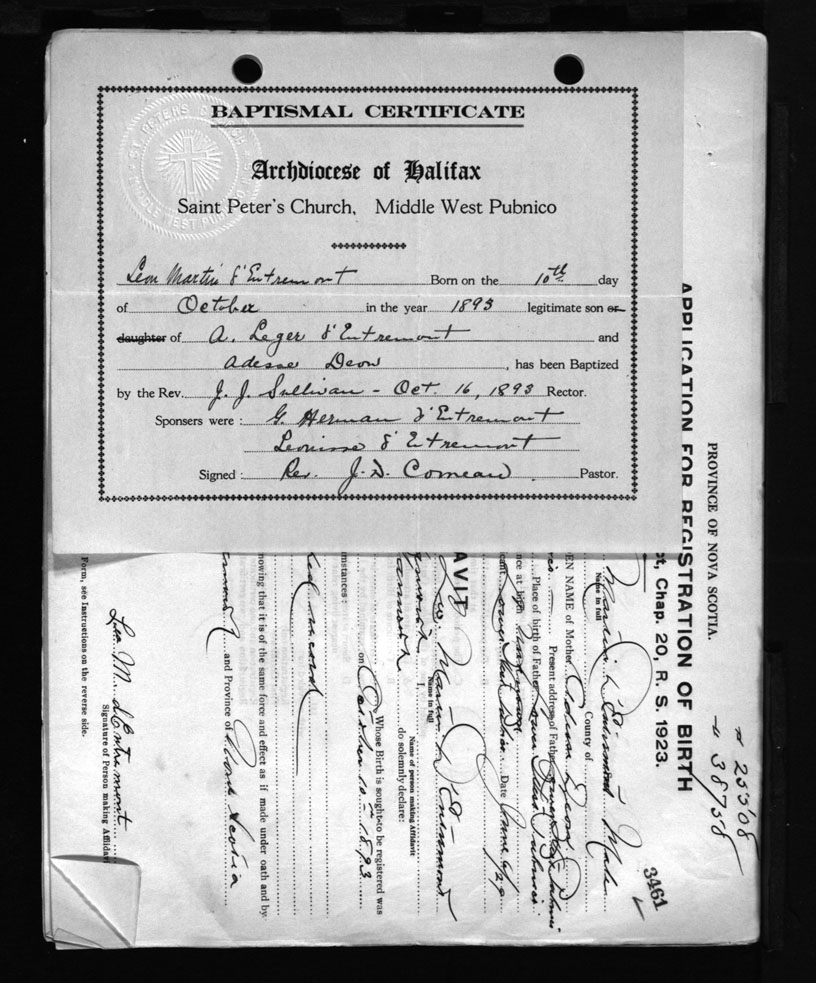 BAPTISMAL CERTIFICATE
Archdiocese of Halifax
Saint Peter's Church, Middle West Pubnico
Leon Martin d'Entremont Born on the 10th day
of October in the year 1893 legitimate son or
daughter of A. Leger d'Entremont and
Adesse Deon, has been Baptized
by the Rev. J. J. Sullivan - Oct. 16, 1893 Rector.
Sponsers were : G. Herman d'Entremont
Leonisse d'Entremont
Signed : Rev. J. D. Comeau. Pastor.
ST. PETER'S CHURCH
MIDDLE WEST PUBNICO
25508
38758
PROVINCE OF NOVA SCOTIA.
APPLICATION FOR REGISTRATION OF BIRTH
ct, Chap. 20, R. S. 1923.
3461
Martin d'Entremont Male
Name in full
County of
EN NAME of Mother
Present address of Father
Place of birth of Father
nce at birth
Date June 6/29
AVIT
Leo Martin d'Entremont
Name in full
I,
Name of person making Affidavit
do solemnly declare:
Whose Birth is sought to be registered was
on October 10th 1893
mstances :
nowing that it is of the same force and effect as if made under oath and by
and Province of Nova Scotia
Leo M. d'Entremont
Signature of Person making Affidavi
Form, see Instructions on the reverse side.